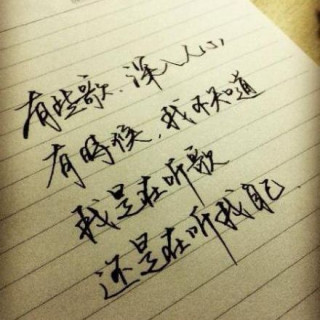 有些歌，深入人心，
有時候，我不知道
我是在听歌
还是在听我自己